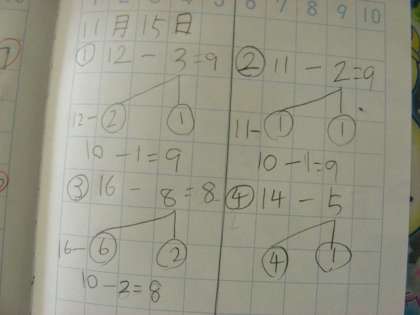 6 7 8 9 10
11月15日
① 12 - 3=9
12- ② ①
10 -1=9
② 11 - 2=9
11- ① ①
10 -1=9
③ 16 - 8=8
16- ⑥ ②
10 -2=8
④ 14 - 5
④ ①